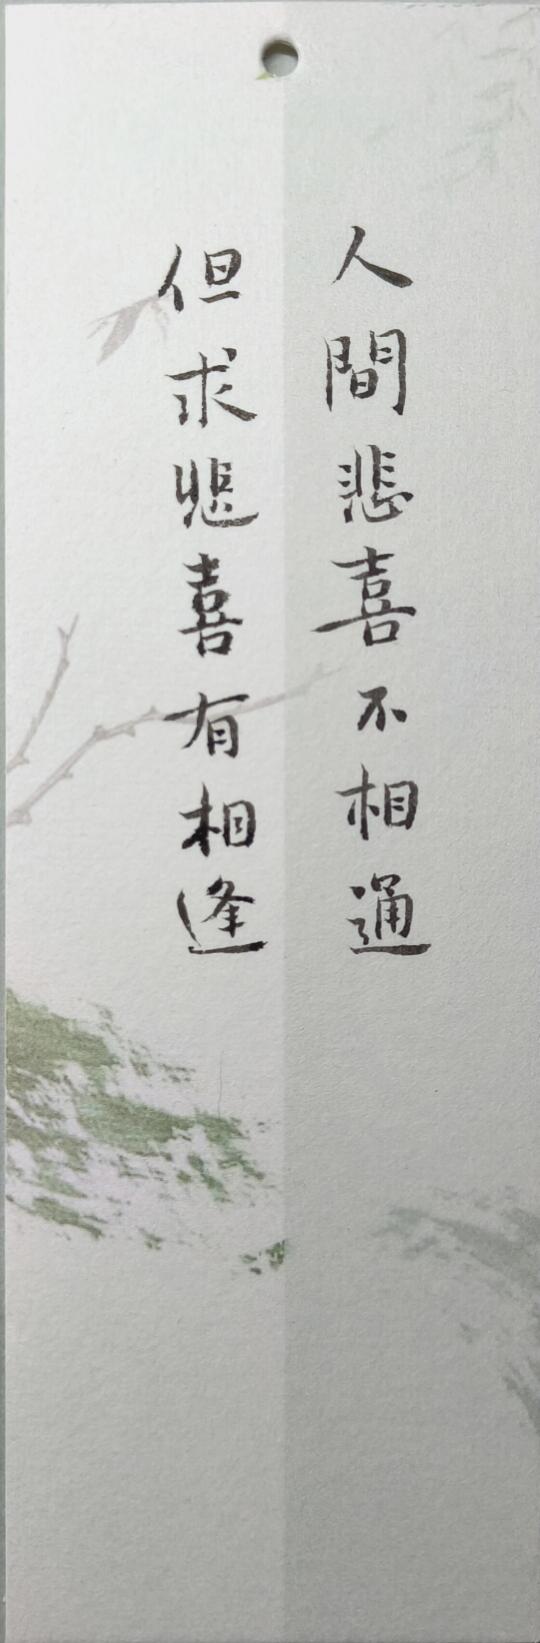 人間悲喜不相通
但求悲喜有相逢